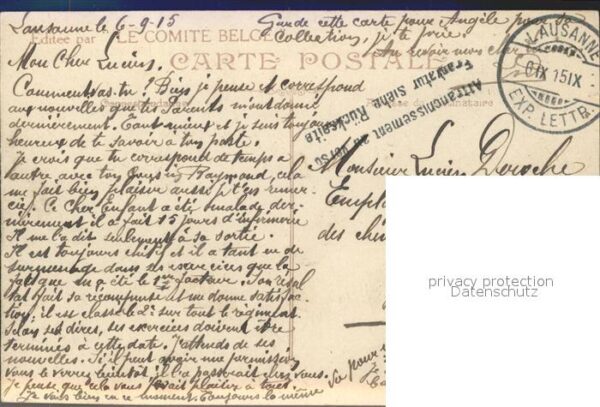 Lausanne le 6-9-15
Garde cette carte pour Angèle pour sa
collection, je te prie.
Au revoir mon cher
Editée par LE COMITE BELGE
CARTE POSTALE
LAUSANNE
IX 15 IX
EXP. LETTR.
Affranchissement au verso
Frankatur Siehe Rückseite
Mon Cher Lucien,
Comment vas-tu? Bien je pense et correspond
aux nouvelles que tes Parents m'ont donné
dernièrement. Tant mieux et je suis toujours
heureux de te savoir à ton poste.
Je crois que tu correspond de temps à
autre avec ton Raymond, cela
me fait bien plaisir aussi je t'en remer-
cie. Ce Cher Enfant a été malade der-
nièrement il a fait 15 jours d'infirmerie
Il me l'a dit seulement à sa sortie.
Il est toujours chétif et il a tant eu de
surmenage dans ses exercices que la
été le 1er facteur. Son résul
tat fait sa récompense et me donne satisfac-
tion; il est classé le 2e sur tout le régiment.
Selon ses dires, ses exercices doivent être
terminés à cette date. J'attends de ses
nouvelles. S'il peut avoir une permission
vous le verrez bientôt, il la passerait chez vous.
Je pense que cela vous ferait plaisir à tous.
Je vais bien en ce moment. Toujours la même
Monsieur Lucien Deroche
Empl
des ch
privacy protection
Datenschutz